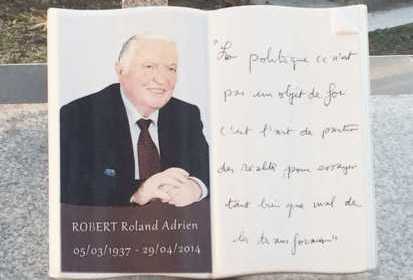 ROBERT Roland Adrien
05/03/1937 - 29/04/2014
"La politique ce n'est
pas un objet de foi
c'est l'art de partir
des réalités, pour essayer
tant bien que mal de
les transformer"